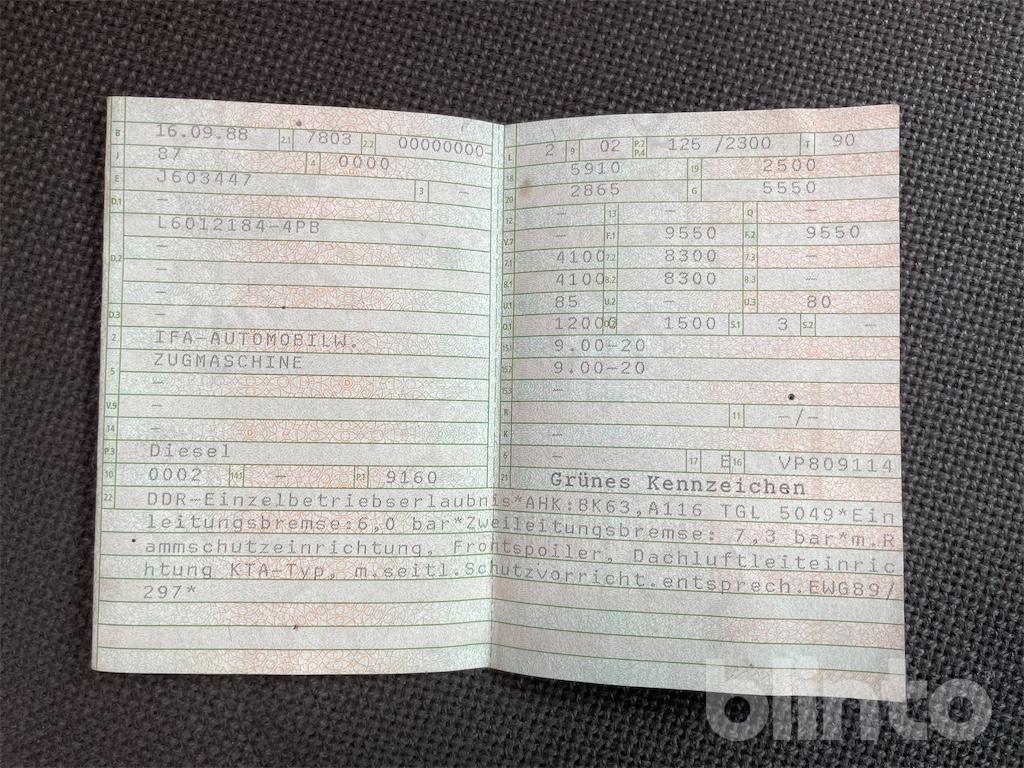 B 16.09.88 2.1 7803 2.2 00000000
J 87 4 0000
E J603447 3 –
D.1 –
L6012184-4PB
D.2 –
–
–
D.3 –
2 IFA-AUTOMOBILW.
5 ZUGMASCHINE
–
V.9 –
14 –
P.3 Diesel
10 0002 14.1 – P.1 9160
L 2 9 02 P.2 P.4 125 /2300 T 90
18 5910 19 2500
20 2865 G 5550
12 – 13 – Q –
V.7 – F.1 9550 F.2 9550
7.1 4100 7.2 8300 7.3 –
8.1 4100 8.2 8300 8.3 –
U.1 85 U.2 U.3 80
O.1 12000 O.2 1500 S.1 3 S.2 –
15.1 9.00-20
15.2 9.00-20
15.3 –
R 11 -/-
K –
6 – 17 E 16 VP809114
21 Grünes Kennzeichen
22 DDR-Einzelbetriebserlaubnis*AHK:BK63,A116 TGL 5049*Ein
leitungsbremse:6,0 bar*Zweileitungsbremse: 7,3 bar*m.R
ammschutzeinrichtung, Frontspoiler, Dachluftleiteinric
htung KTA-Typ, m.seitl.Schutzvorricht.entsprech.EWG89/
297*
blinto